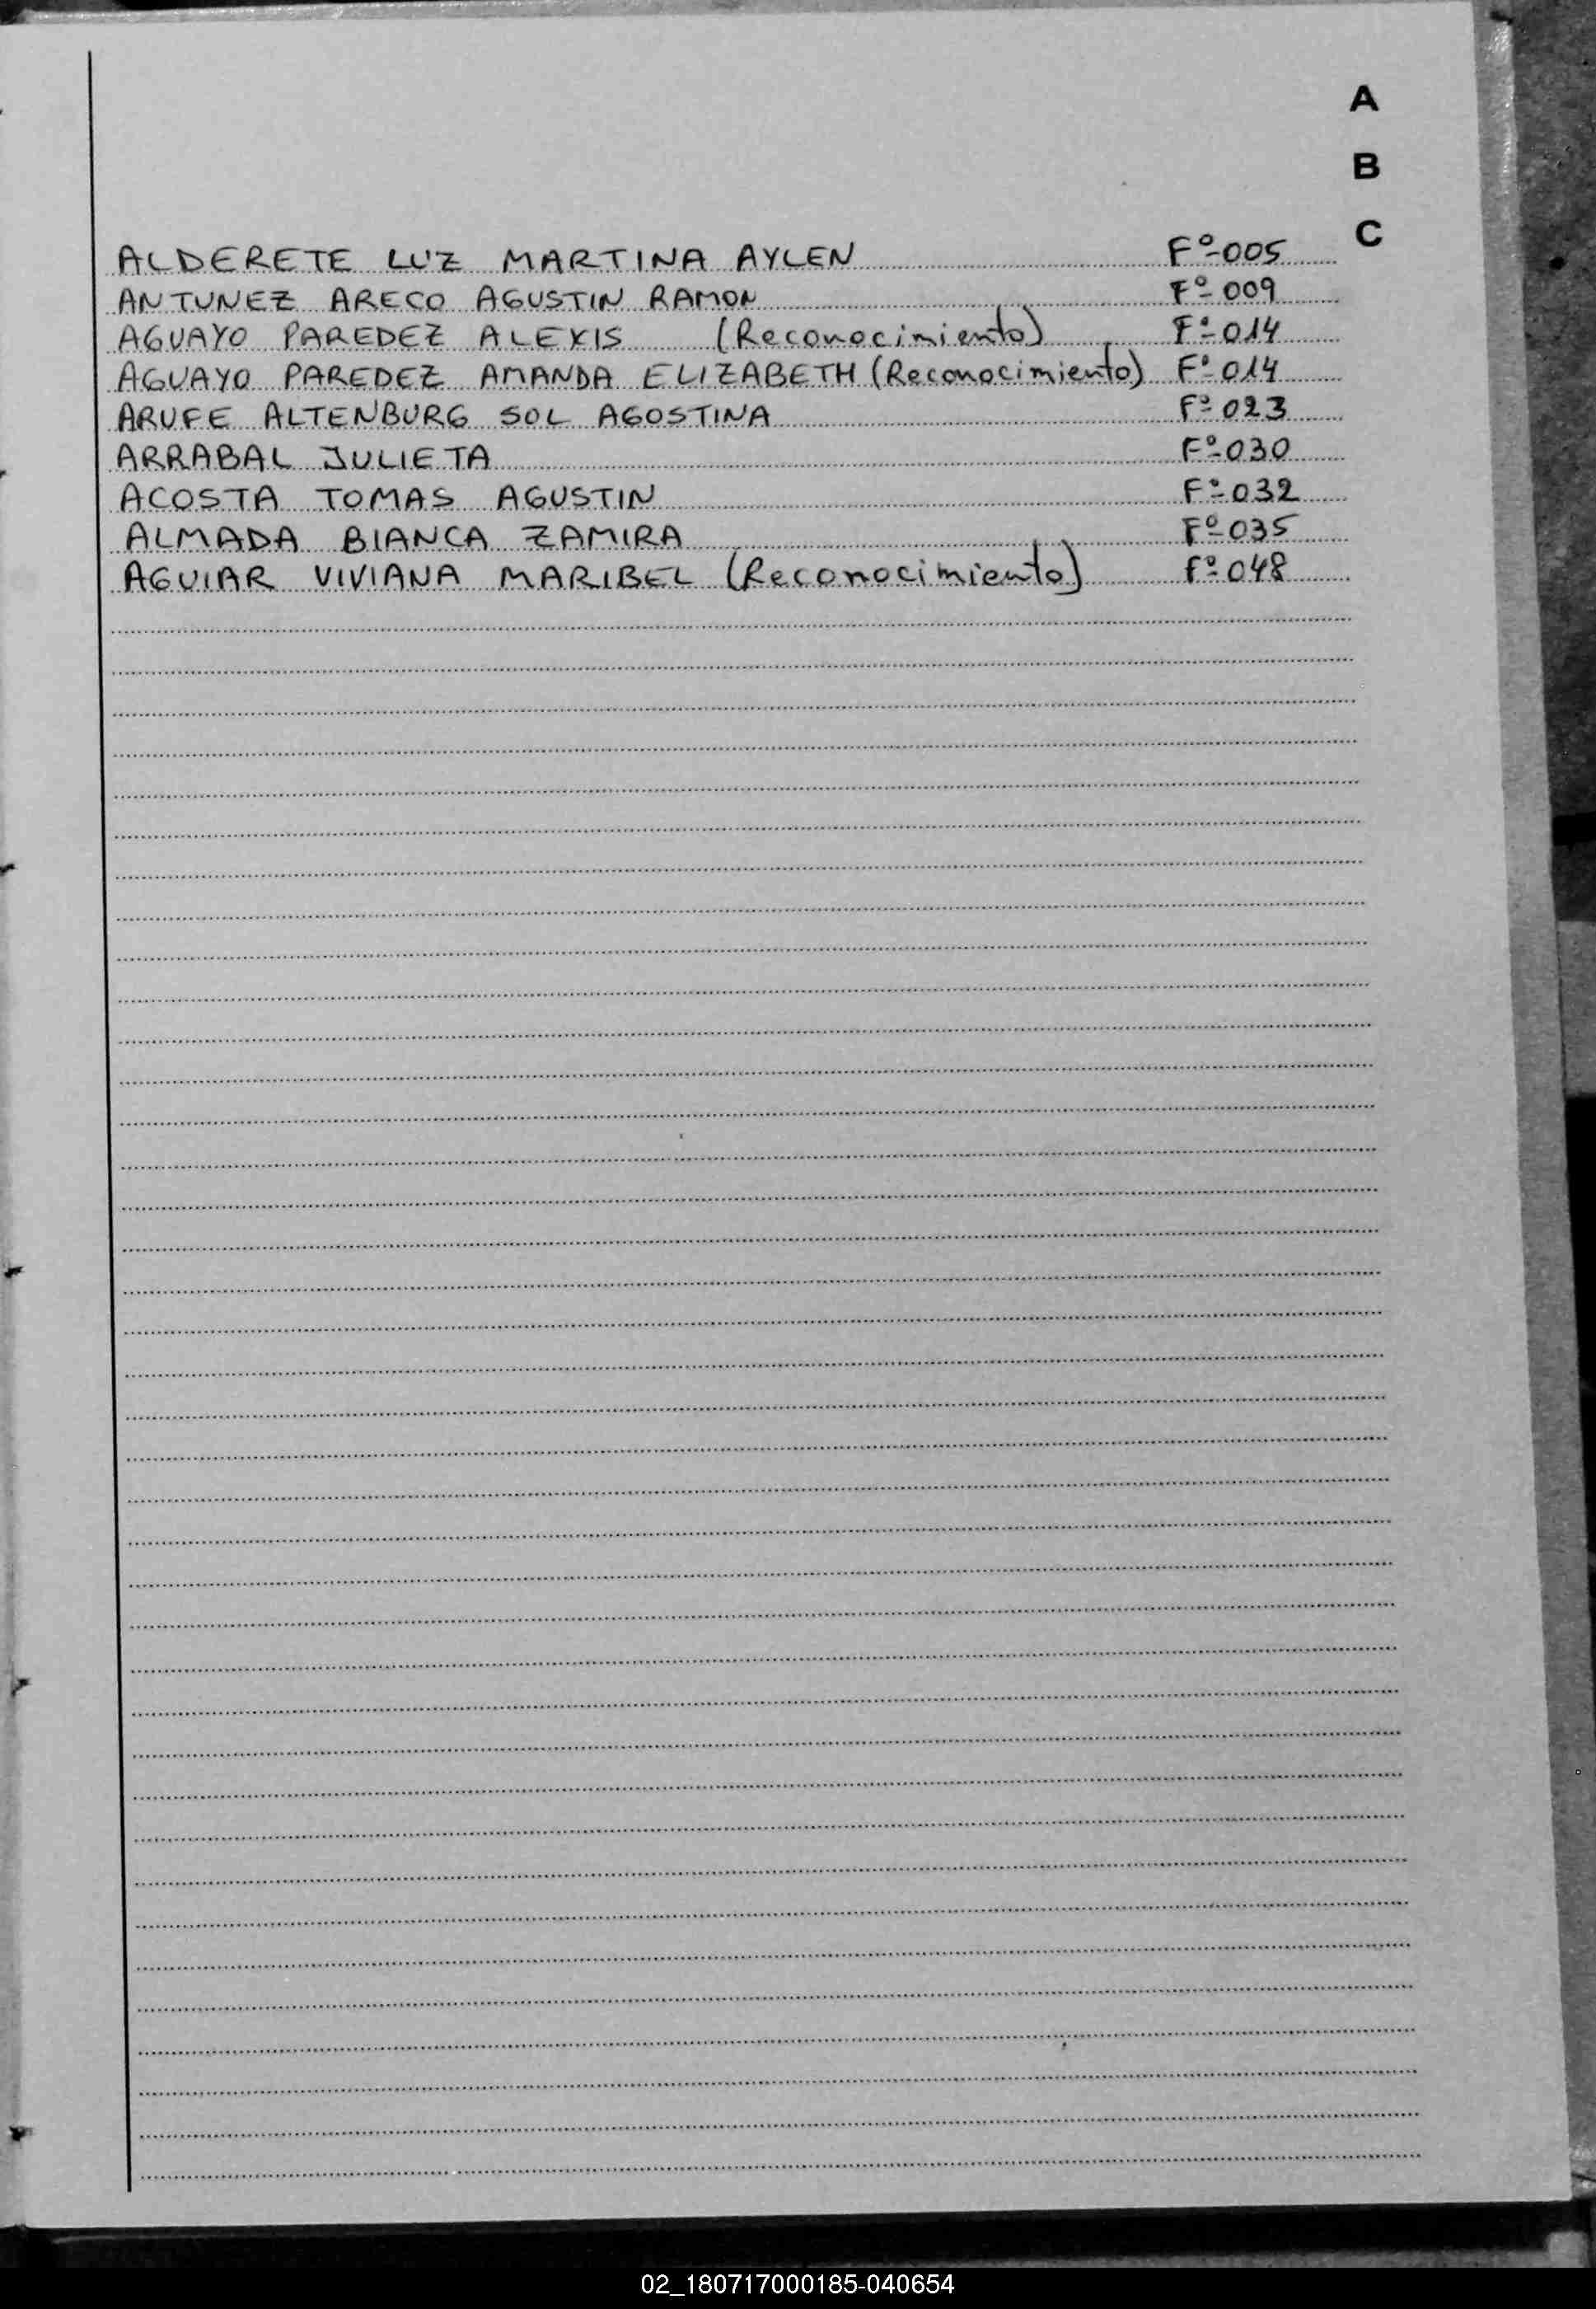 A
B
C
ALDERETE LUZ MARTINA AYLEN Fº-005
ANTUNEZ ARECO AGUSTIN RAMON Fº-009
AGUAYO PAREDEZ ALEXIS (Reconocimiento) Fº-014
AGUAYO PAREDEZ AMANDA ELIZABETH (Reconocimiento) Fº-014
ARUFE ALTENBURG SOL AGOSTINA Fº-023
ARRABAL JULIETA Fº-030
ACOSTA TOMAS AGUSTIN Fº-032
ALMADA BIANCA ZAMIRA Fº-035
AGUIAR VIVIANA MARIBEL (Reconocimiento) Fº-048
02_180717000185-040654